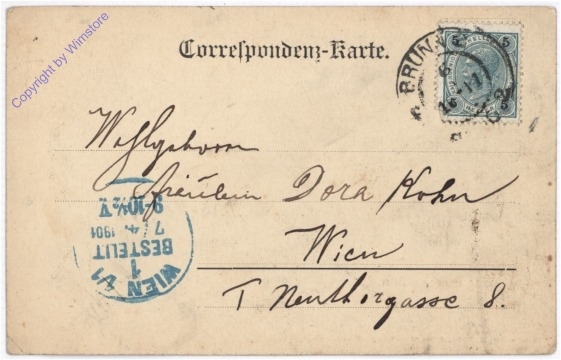 Correspondenz-Karte.
BRUNN
5 5
Wohlgeboren
Fräulein Dora Kohn
Wien
I Neuthorgasse 8.
WIEN 1/1
1
BESTELLT
7/4. 1901
9-10½V
Copyright by Wimstore